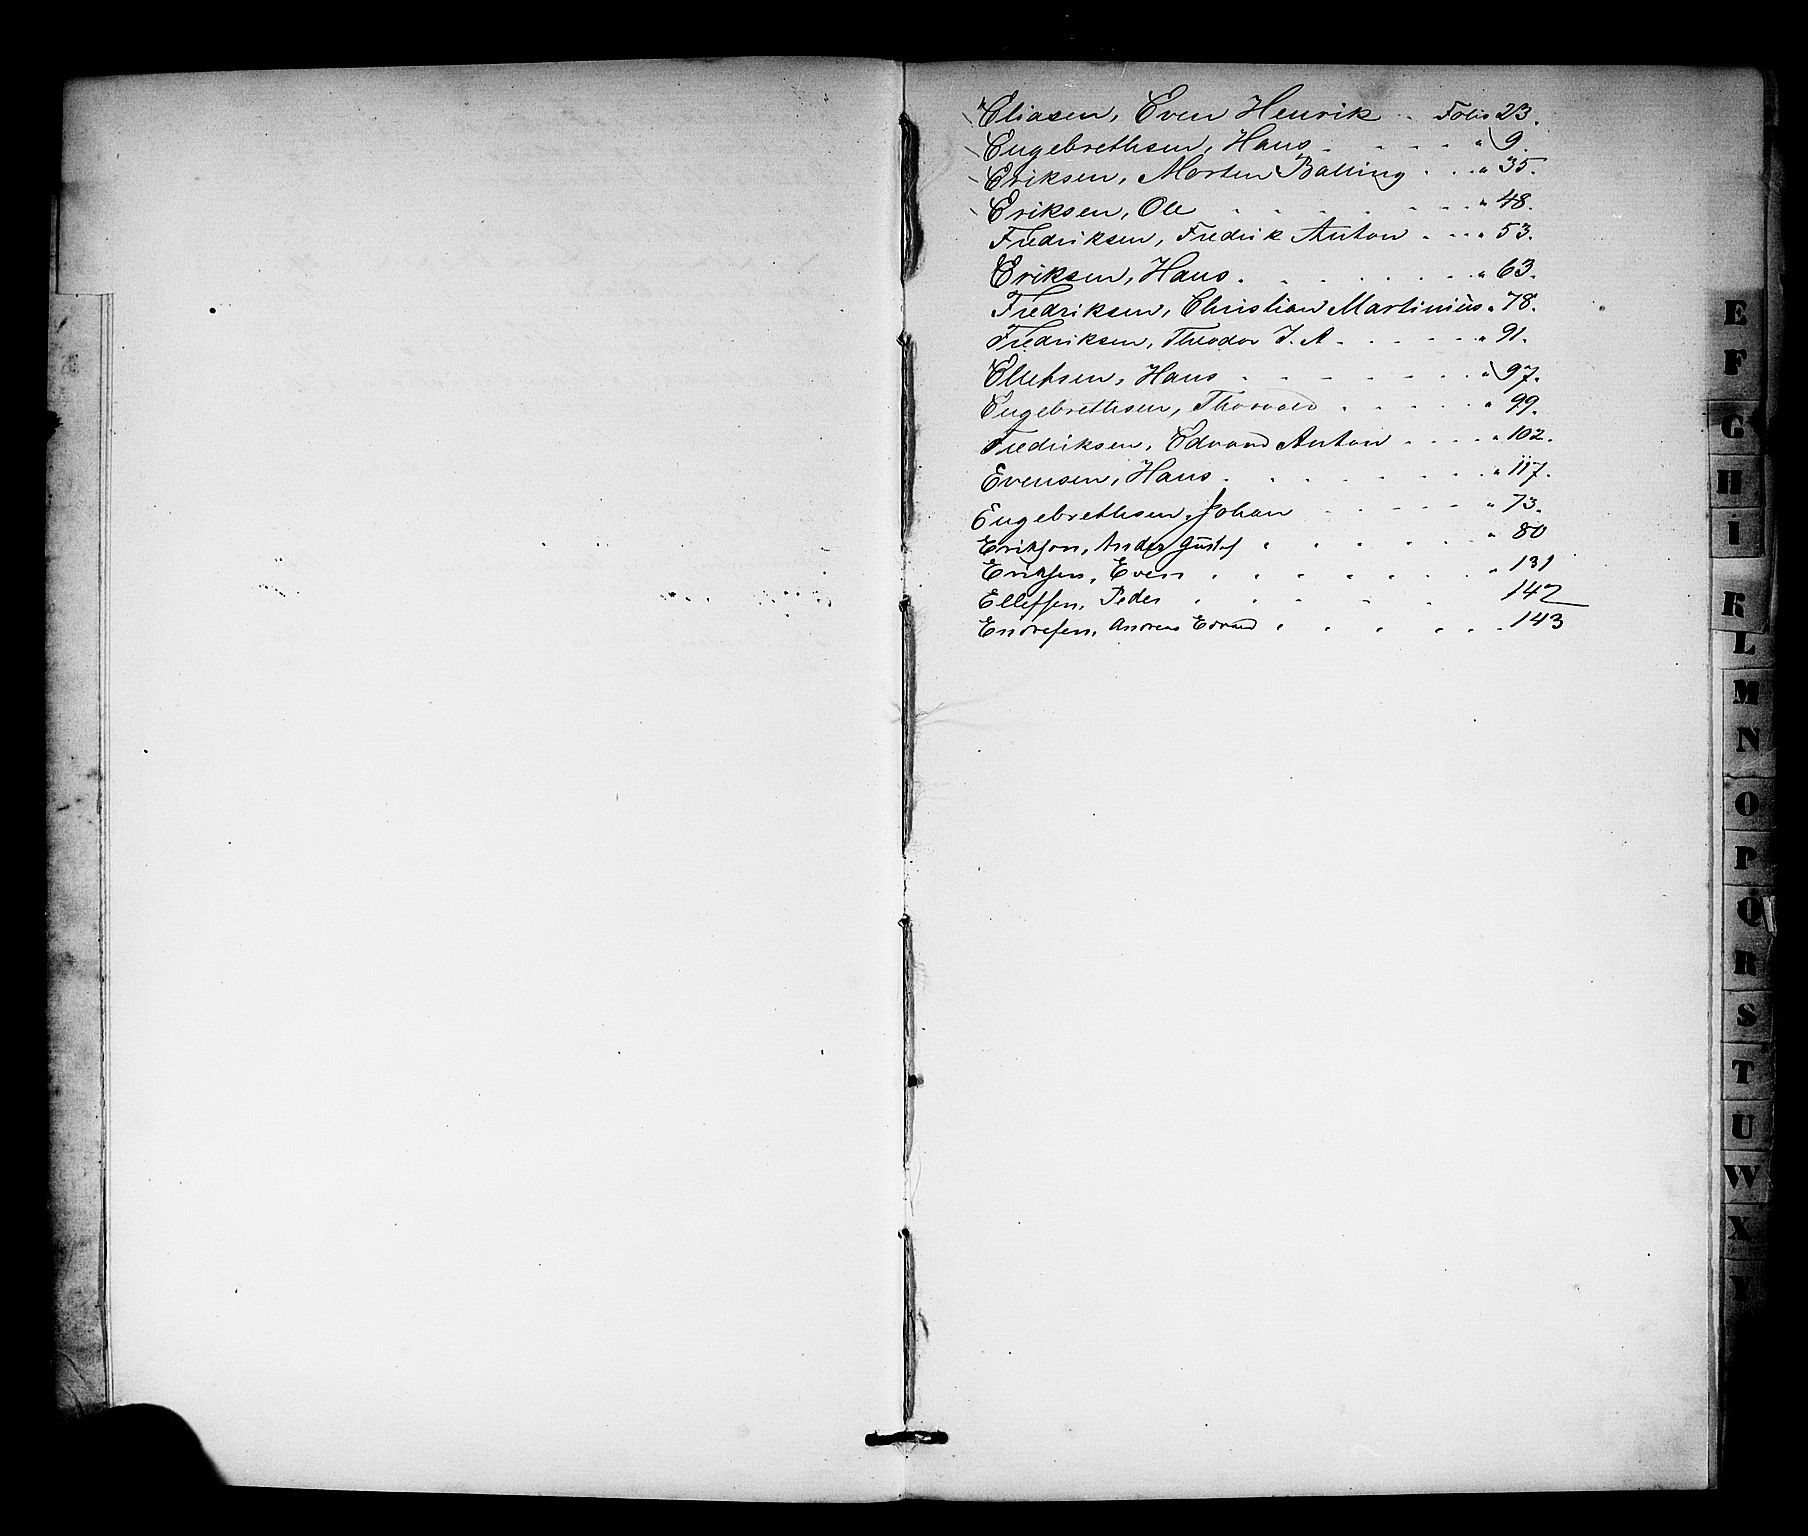 Eliasen, Even Henrik . Folio 23.
Engebrethsen, Hans . . . . " 9.
Eriksen, Morten Balling . . . " 35.
Eriksen, Ole . . . . . . " 48.
Fredriksen, Fredrik Anton . . . " 53.
Eriksen, Hans . . . . . . " 63.
Fredriksen, Christian Martinius " 78.
Fredriksen, Theodor J. A . . . . " 91.
Ellefsen, Hans . . . . . . " 97.
Engebrethsen, Thorvald . . . . " 99.
Fredriksen, Edvard Anton . . . . " 102.
Evensen, Hans . . . . . . " 117.
Engebrethsen, Johan . . . . . " 73.
Erikson, Anders Gustaf . . . . " 80
Eriksen, Even . . . . . . " 131
Ellefsen, Peder . . . . . 142
Endresen, Andreas Edvard . . . . . 143
E
F
G
H
I
K
L
M
N
O
P
Q
R
S
T
U
W
X
Y